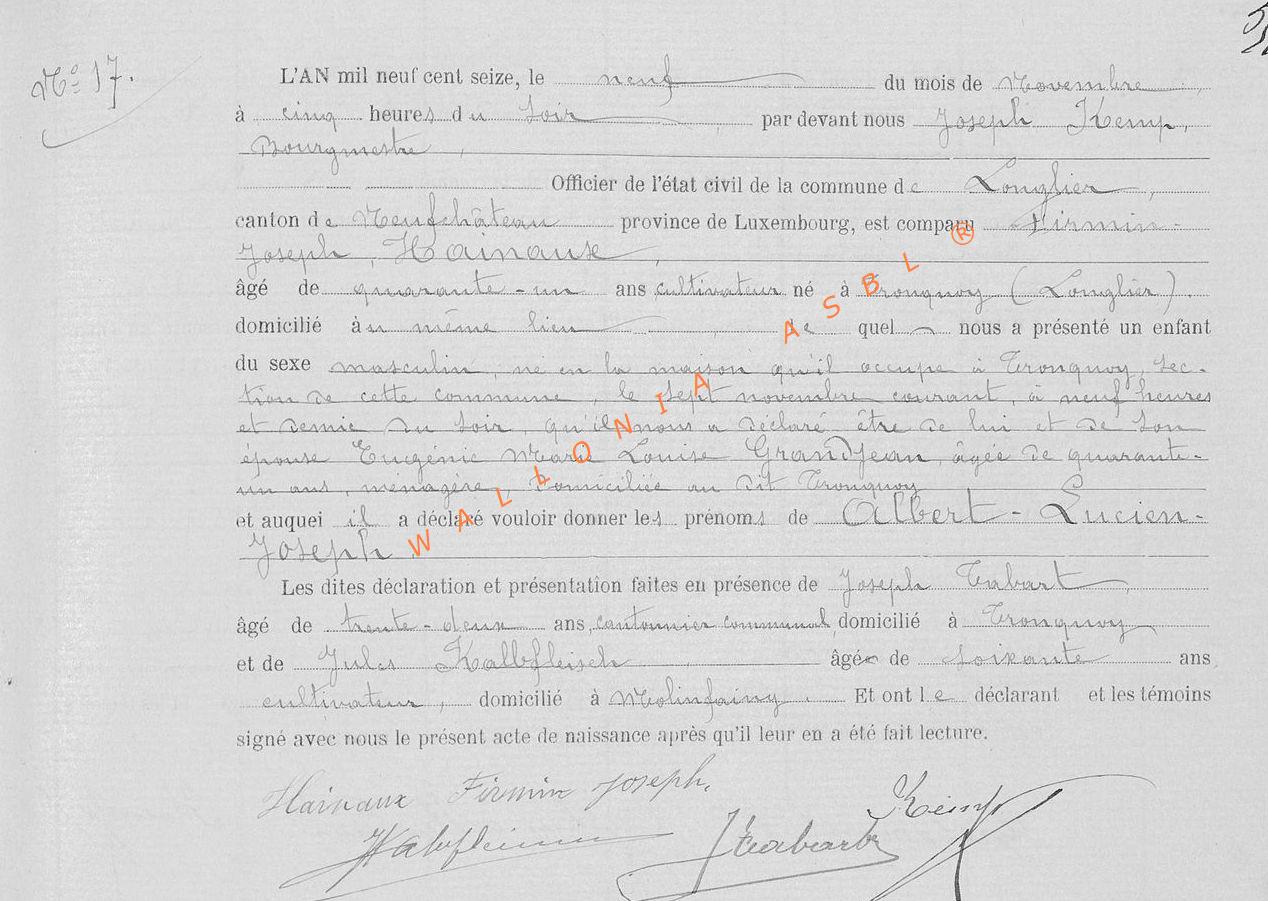 N° 17.
L'AN mil neuf cent seize, le neuf du mois de Novembre,
à cinq heures du soir par devant nous Joseph Kemp,
Bourgmestre,
Officier de l'état civil de la commune de Longlier,
canton de Neufchâteau province de Luxembourg, est comparu Firmin-
Joseph, Hainaux,
âgé de quarante-un ans cultivateur né à Tronquoy (Longlier).
domicilié au même lieu le quel nous a présenté un enfant
du sexe masculin, né en la maison qu'il occupe à Tronquoy, sec-
tion de cette commune, le sept novembre courant, à neuf heures
et demie du soir, qu'il nous a déclaré être de lui et de son
épouse Eugénie Marie Louise Grandjean, âgée de quarante-
un ans, ménagère, domiciliée au dit Tronquoy
et auquel il a déclaré vouloir donner les prénoms de Albert-Lucien-
Joseph
Les dites déclaration et présentation faites en présence de Joseph Tabart,
âgé de trente-deux ans, cantonnier communal, domicilié à Tronquoy
et de Jules Kalbfleisch âgé de soixante ans
cultivateur, domicilié à Molinfaing. Et ont le déclarant et les témoins
signé avec nous le présent acte de naissance après qu'il leur en a été fait lecture.
Hainaux Firmin Joseph. Kemp
JTabart
WALLONIA ASBL ®